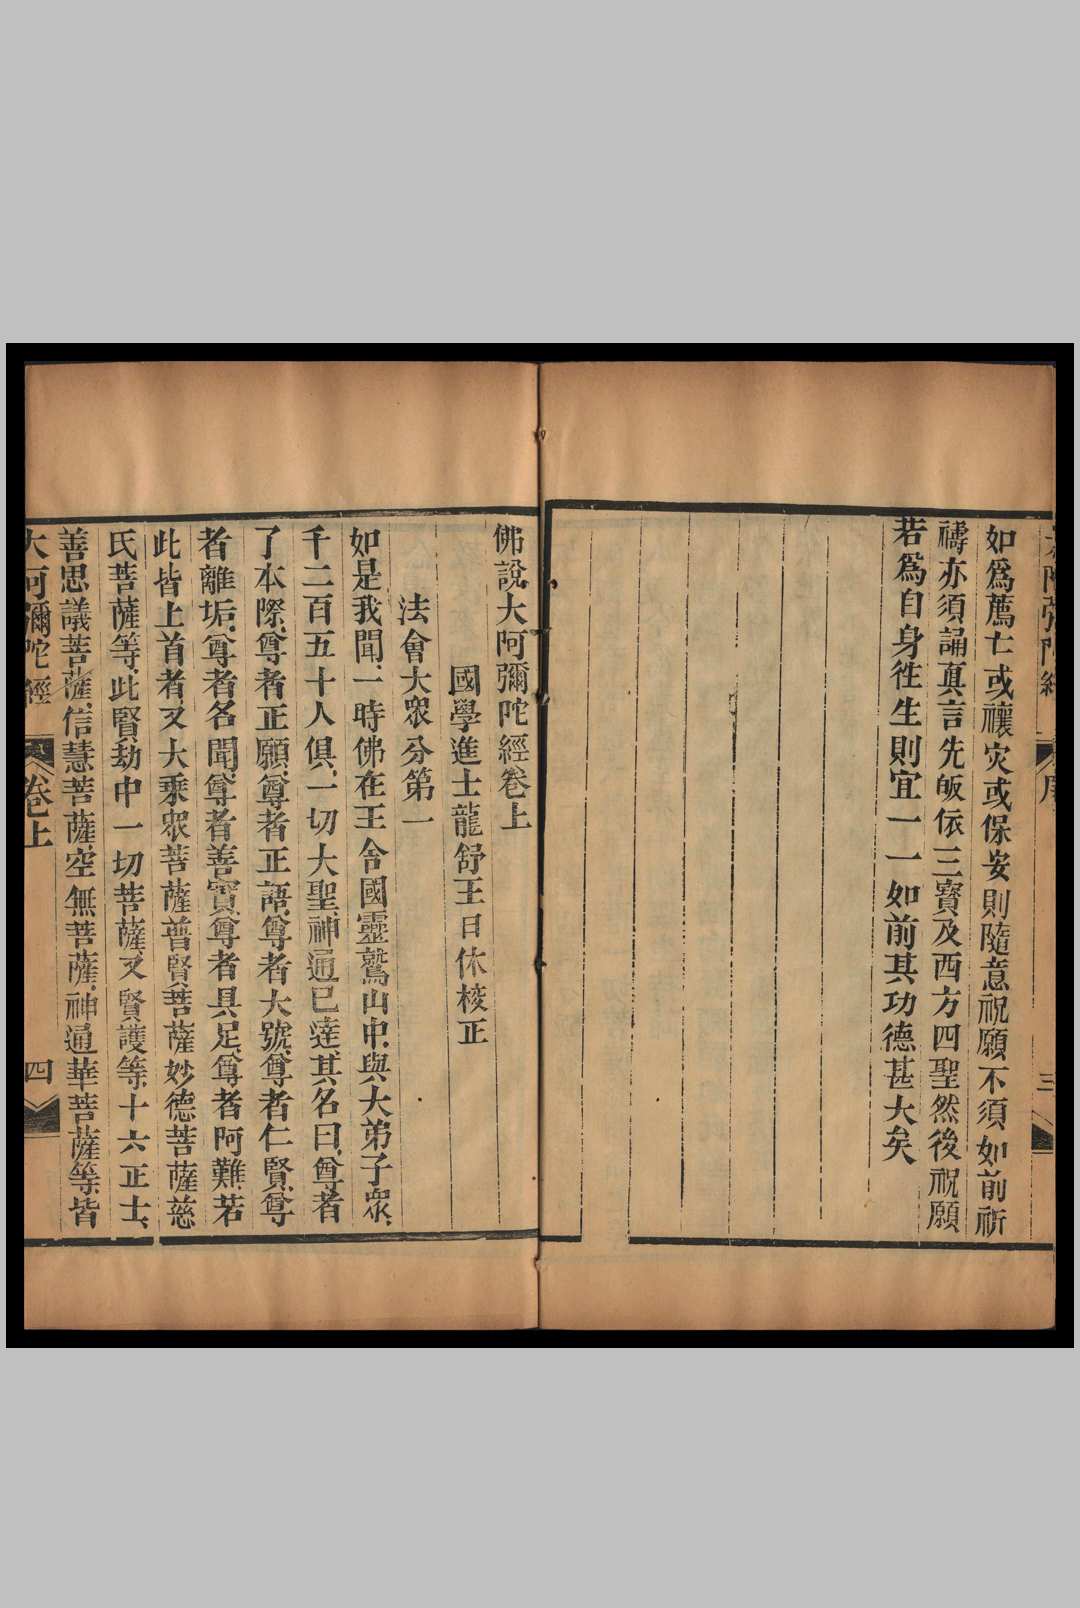 大阿彌陀經
序
三
如爲薦亡或禳灾或保安則隨意祝願不須如前祈
禱亦須誦真言先皈依三寶及西方四聖然後祝願
若爲自身徃生則宜一一如前其功德甚大矣
佛說大阿彌陀經卷上
國學進士龍舒王日休校正
法會大衆分第一
如是我聞、一時佛在王舍國靈鷲山中、與大弟子衆、
千二百五十人俱、一切大聖、神通已達、其名曰、尊者
了本際、尊者正願、尊者正語、尊者大號、尊者仁賢、尊
者離垢、尊者名聞、尊者善實、尊者具足、尊者阿難、若
此皆上首者、又大乘衆菩薩普賢菩薩妙德菩薩慈
氏菩薩等、此賢劫中一切菩薩、又賢護等、十六正士、
善思議菩薩、信慧菩薩、空無菩薩、神通華菩薩等、皆
大阿彌陀經
卷上
四